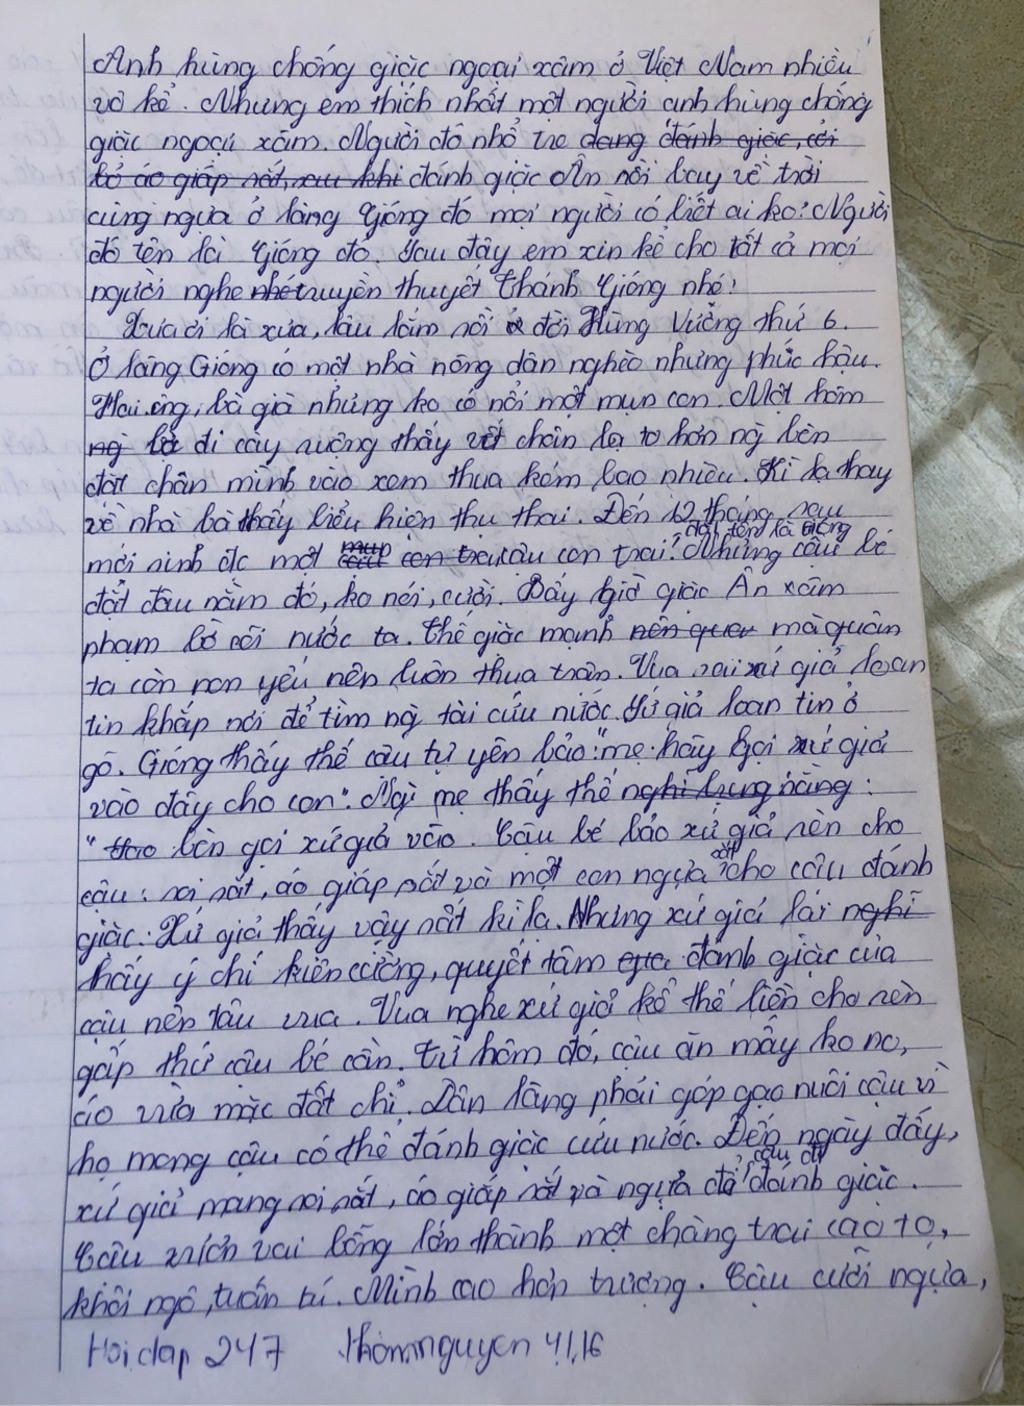 Anh hùng chống giặc ngoại xâm ở Việt Nam nhiều
vô kể. Nhưng em thích nhất một người anh hùng chống
giặc ngoại xâm. Người đó nhổ tre đang đánh giặc, cởi
bỏ áo giáp sắt, sau khi đánh giặc Ân rồi bay về trời
cùng ngựa ở làng Gióng đó mọi người có biết ai ko? Người
đó tên là Gióng đó. Sau đây em xin kể cho tất cả mọi
người nghe nhé truyền thuyết Thánh Gióng nhé!
Xưa ơi là xưa, lâu lắm rồi ở đời Hùng Vương thứ 6.
Ở làng Gióng có một nhà nông dân nghèo nhưng phúc hậu.
Hai ông, bà già nhưng ko có nổi một mụn con. Một hôm
ng bà đi cày ruộng thấy vết chân lạ to hơn ng bèn
đặt chân mình vào xem thua kém bao nhiêu. Kì lạ thay
về nhà bà thấy biểu hiện thụ thai. Đến 12 tháng sau
mới sinh đc một mụn con trai cậu con trai. đặt tên là Gióng Nhưng cậu bé
đặt đâu nằm đó, ko nói, cười. Bấy giờ giặc Ân xâm
phạm bờ cõi nước ta. Thế giặc mạnh nên quan mà quân
ta còn non yếu nên luôn thua trận. Vua sai xứ giả loan
tin khắp nơi để tìm ng tài cứu nước. Xứ giả loan tin ở
gõ. Gióng thấy thế cậu tự yên bảo: "mẹ hãy gọi xứ giả
vào đây cho con". Ng mẹ thấy thế nghĩ bụng rằng:
" bèn gọi xứ giả vào. Cậu bé bảo xứ giả rèn cho
cậu: roi sắt, áo giáp sắt và một con ngựa sắt cho cậu đánh
giặc. Xứ giả thấy vậy rất kì lạ. Nhưng xứ giả lại nghĩ
thấy ý chí kiên cường, quyết tâm đánh giặc của
cậu nên tâu vua. Vua nghe xứ giả kể thế liền cho rèn
gấp thứ cậu bé cần. Từ hôm đó, cậu ăn mấy ko no,
áo vừa mặc đất chỉ. Dân làng phải góp gạo nuôi cậu vì
họ mong cậu có thể đánh giặc cứu nước. Đến ngày đấy,
xứ giả mang roi sắt, áo giáp sắt và ngựa để cậu đi đánh giặc.
Cậu vươn vai bỗng lớn thành một chàng trai cao to,
khôi ngô, tuấn tú. Mình cao hơn trượng. Cậu cưỡi ngựa,
Hoidap 247 thomnguyen 41,16